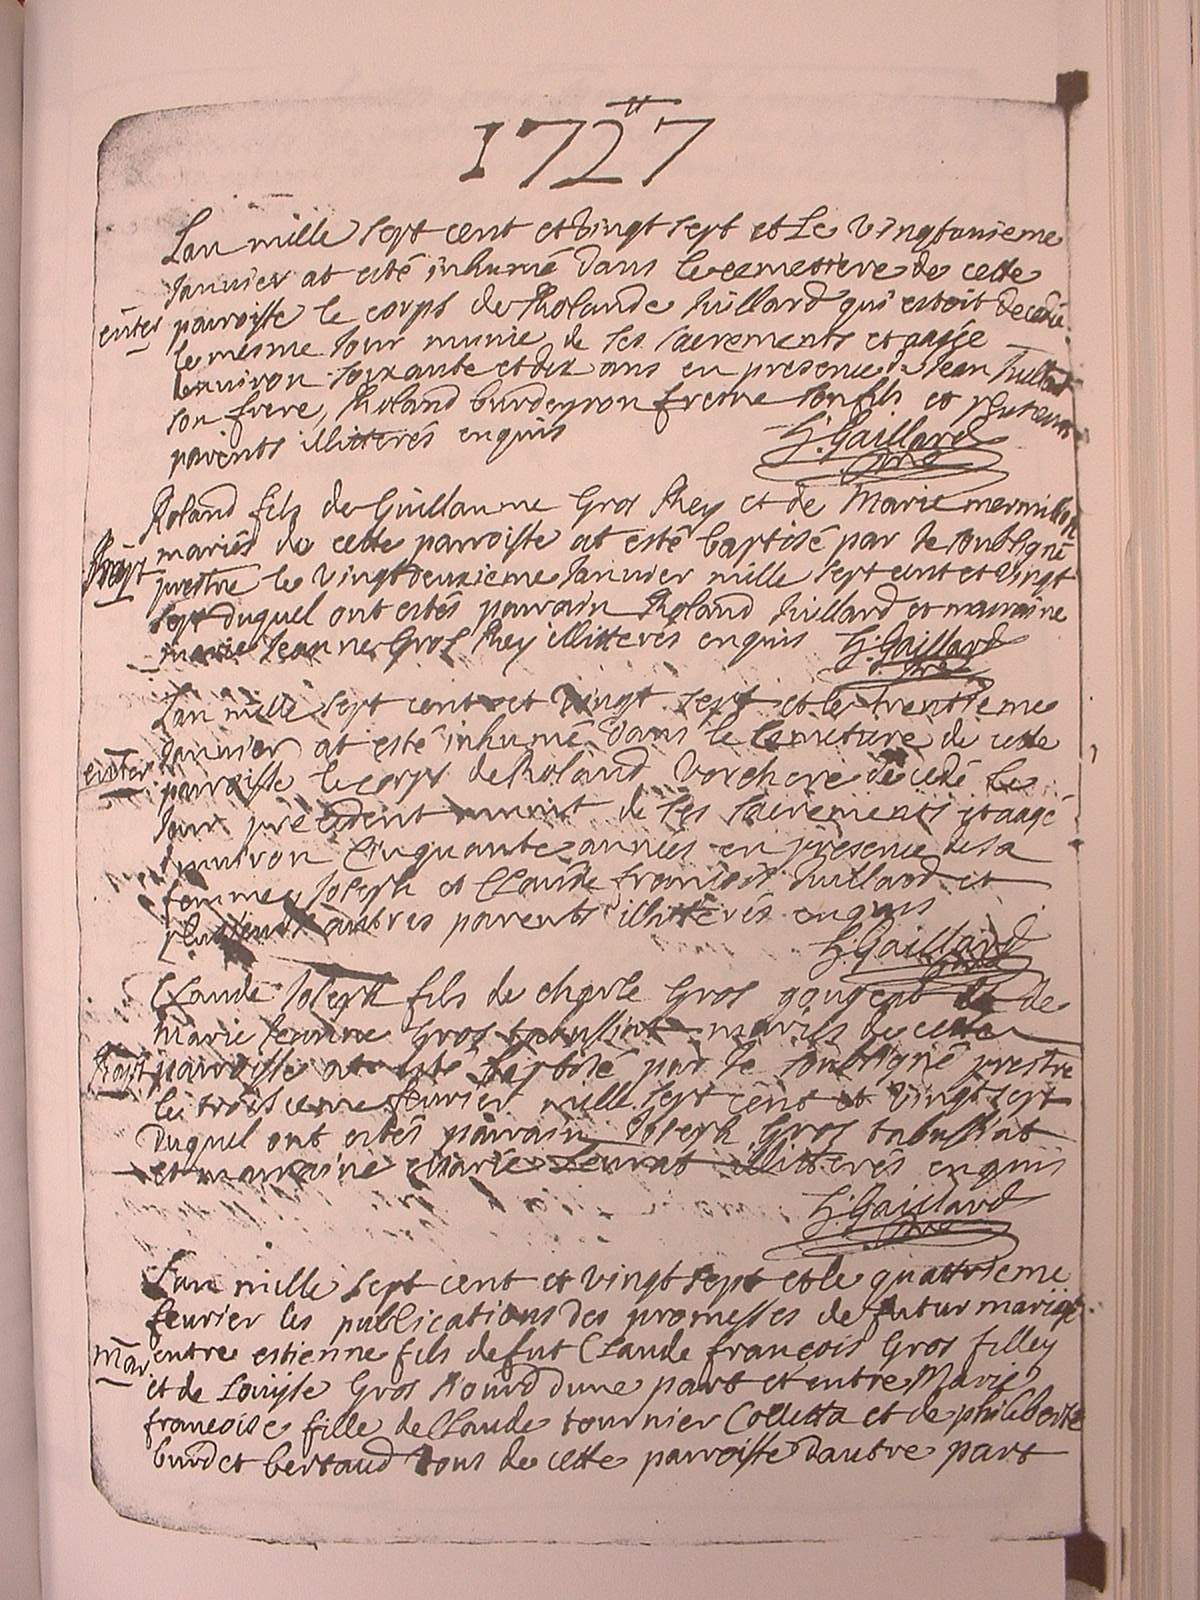 1727
Lan mille sept cent et vingt sept et Le vingtunieme
Janvier at esté inhumé dans le cemetiere de cette
enter paroisse le corps de Rolande Jullard qui estoit decedé
le mesme Jour munie de ses sacrements et aagée
denviron soixante et dix ans en presence de Jean Jullard
son frere, Roland burdeyron freme son fils et plusieurs
parents illitterés enquis G. Gaillard
Roland fils de Guillaume Gros Rey et de Marie mermillod
mariés de cette parroisse at esté baptisé par Je soubsigné
Bapt prestre le vingtdeuxieme Janvier mille sept cent et vingt
sept duquel ont estés parrain Roland Jullard et marraine
marie Jeanne Gros Rey illitterés enquis G. Gaillard
Lan mille sept cent et vingt sept et le trentieme
Janvier at esté inhumé dans le Cemetiere de cette
enter paroisse le corps de Roland Vorchere decedé Le
Jour precedent munit de ses sacrements et aagé
denviron Cinquante années en presence de sa
femme, Joseph et Claude francois Jullard et
plusieurs autres parents illitterés enquis
G. Gaillard
Claude Joseph fils de charle Gros gougeat et de
marie Jeanne Gros tabussiat mariés de cette
Bapt parroisse at esté baptisé par Je soubsigné prestre
le troisieme fevrier mille sept cent et vingt sept
duquel ont estés parrain Joseph Gros tabussiat
et marraine marie Seurat illitterés enquis
G. Gaillard
Lan mille sept cent et vingt sept et le quattrieme
fevrier les publications des promesses de futur mariage
Mar entre estienne fils de fut Claude françois Gros filley
et de Louyse Gros Rourd dune part et entre Marie
francoise fille de Claude tournier Colletta et de philiberte
burdet bertaud tous de cette parroisse dautre part